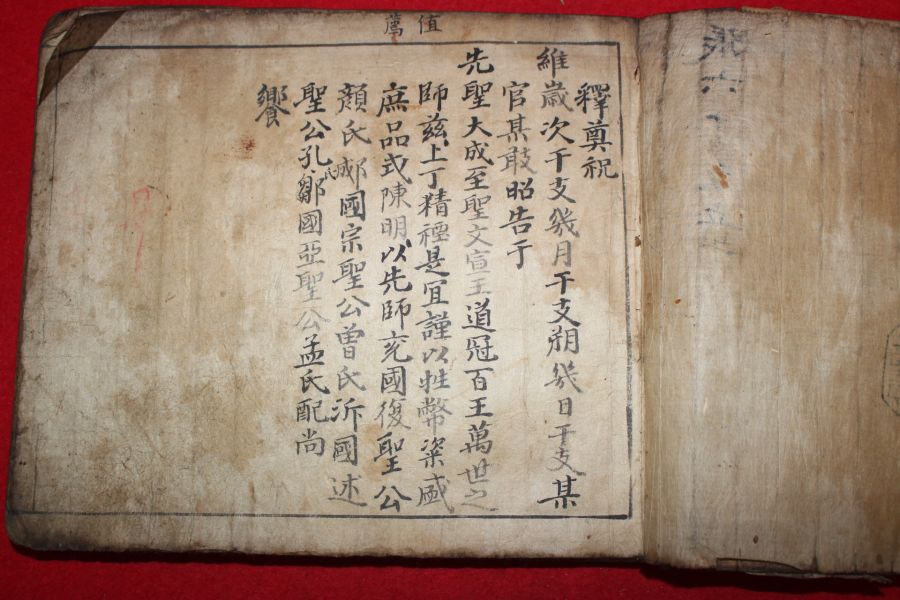 值薦
釋奠祝
維歲次干支幾月干支朔幾日干支某
官某敢昭告于
先聖大成至聖文宣王道冠百王萬世之
師玆上丁精禋是宜謹以牲幣粢盛
庶品式陳明以先師兗國復聖公
顏氏郕國宗聖公曾氏沂國述
聖公孔氏鄒國亞聖公孟氏配尚
饗